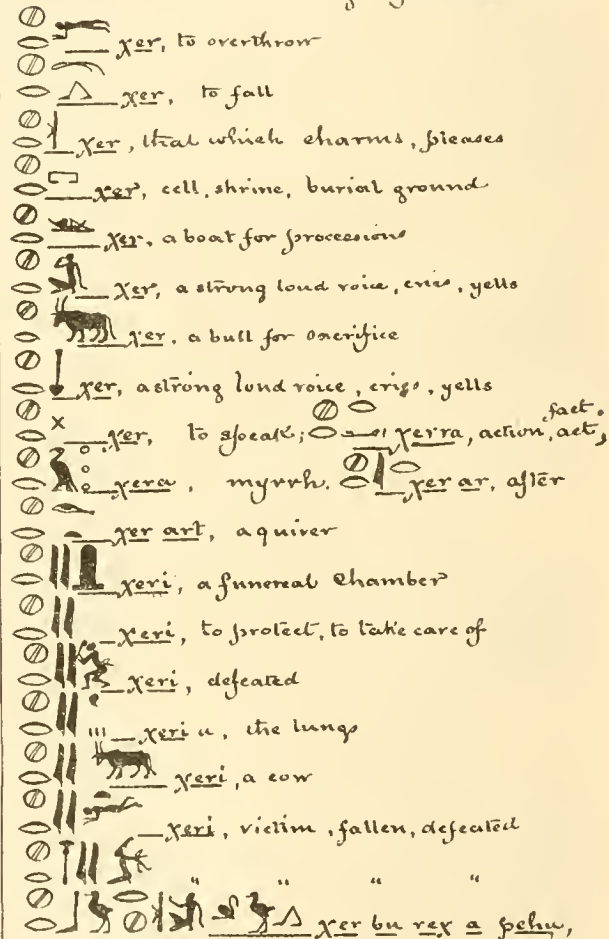 xer, to overthrow
xer, to fall
xer, that which charms, pleases
xer, cell, shrine, burial ground
xer, a boat for processions
xer, a strong loud voice, cries, yells
xer, a bull for sacrifice
xer, a strong loud voice, cries, yells
xer, to speak; xerra, action, act, fact.
xera, myrrh. xer ar, after
xer art, a quiver
xeri, a funereal chamber
xeri, to protect, to take care of
xeri, defeated
xeri u, the lungs
xeri, a cow
xeri, victim, fallen, defeated
" " " "
xer bu rex a pehu,